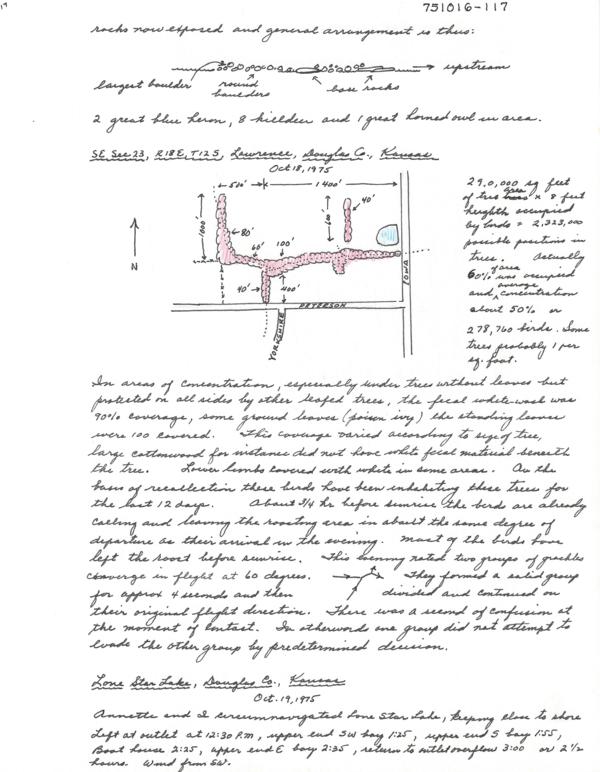 751016-117
rocks now exposed and general arrangement is thus:
upstream
largest boulder round boulders base rocks
2 great blue heron, 8 killdeer and 1 great horned owl in area.
SE Sec 23, R18E, T12S, Lawrence, Douglas Co., Kansas
Oct 18, 1975
510' 1400'
1000' 600' 40'
80'
60' 100'
40' 400'
N
IOWA
PETERSON
YORKSHIRE
290,000 sq feet
of tree area x 8 feet
heighth occupied
by birds = 2,323,000
possible positions in
trees. Actually
60% of area was occupied
and average concentration
about 50% or
278,760 birds. Some
trees probably 1 per
sq. foot.
In areas of concentration, especially under trees without leaves but
protected on all sides by other leafed trees, the fecal white-wash was
90% coverage, some ground leaves (poison ivy) the standing leaves
were 100 covered. This coverage varied according to size of tree,
large cottonwood for instance did not have white fecal material beneath
the tree. Lower limbs covered with white in some areas. On the
basis of recollection these birds have been inhabiting these trees for
the last 12 days. About 3/4 hr before sunrise the birds are already
calling and leaving the roosting area in about the same degree of
departure as their arrival in the evening. Most of the birds have
left the roost before sunrise. This evening noted two groups of grackles
converge in flight at 60 degrees. They formed a solid group
for approx 4 seconds and then divided and continued on
their original flight direction. There was a second of confusion at
the moment of contact. In otherwords one group did not attempt to
evade the other group by predetermined decision.
Lone Star Lake, Douglas Co., Kansas
Oct. 19, 1975
Annette and I circumnavigated Lone Star Lake, keeping close to shore
Left at outlet at 12:30 P.M, upper end SW bay 1:25, upper end S bay 1:55,
Boat house 2:25, upper end E bay 2:35, return to outlet overflow 3:00 or 2 1/2
hours. Wind from SW.